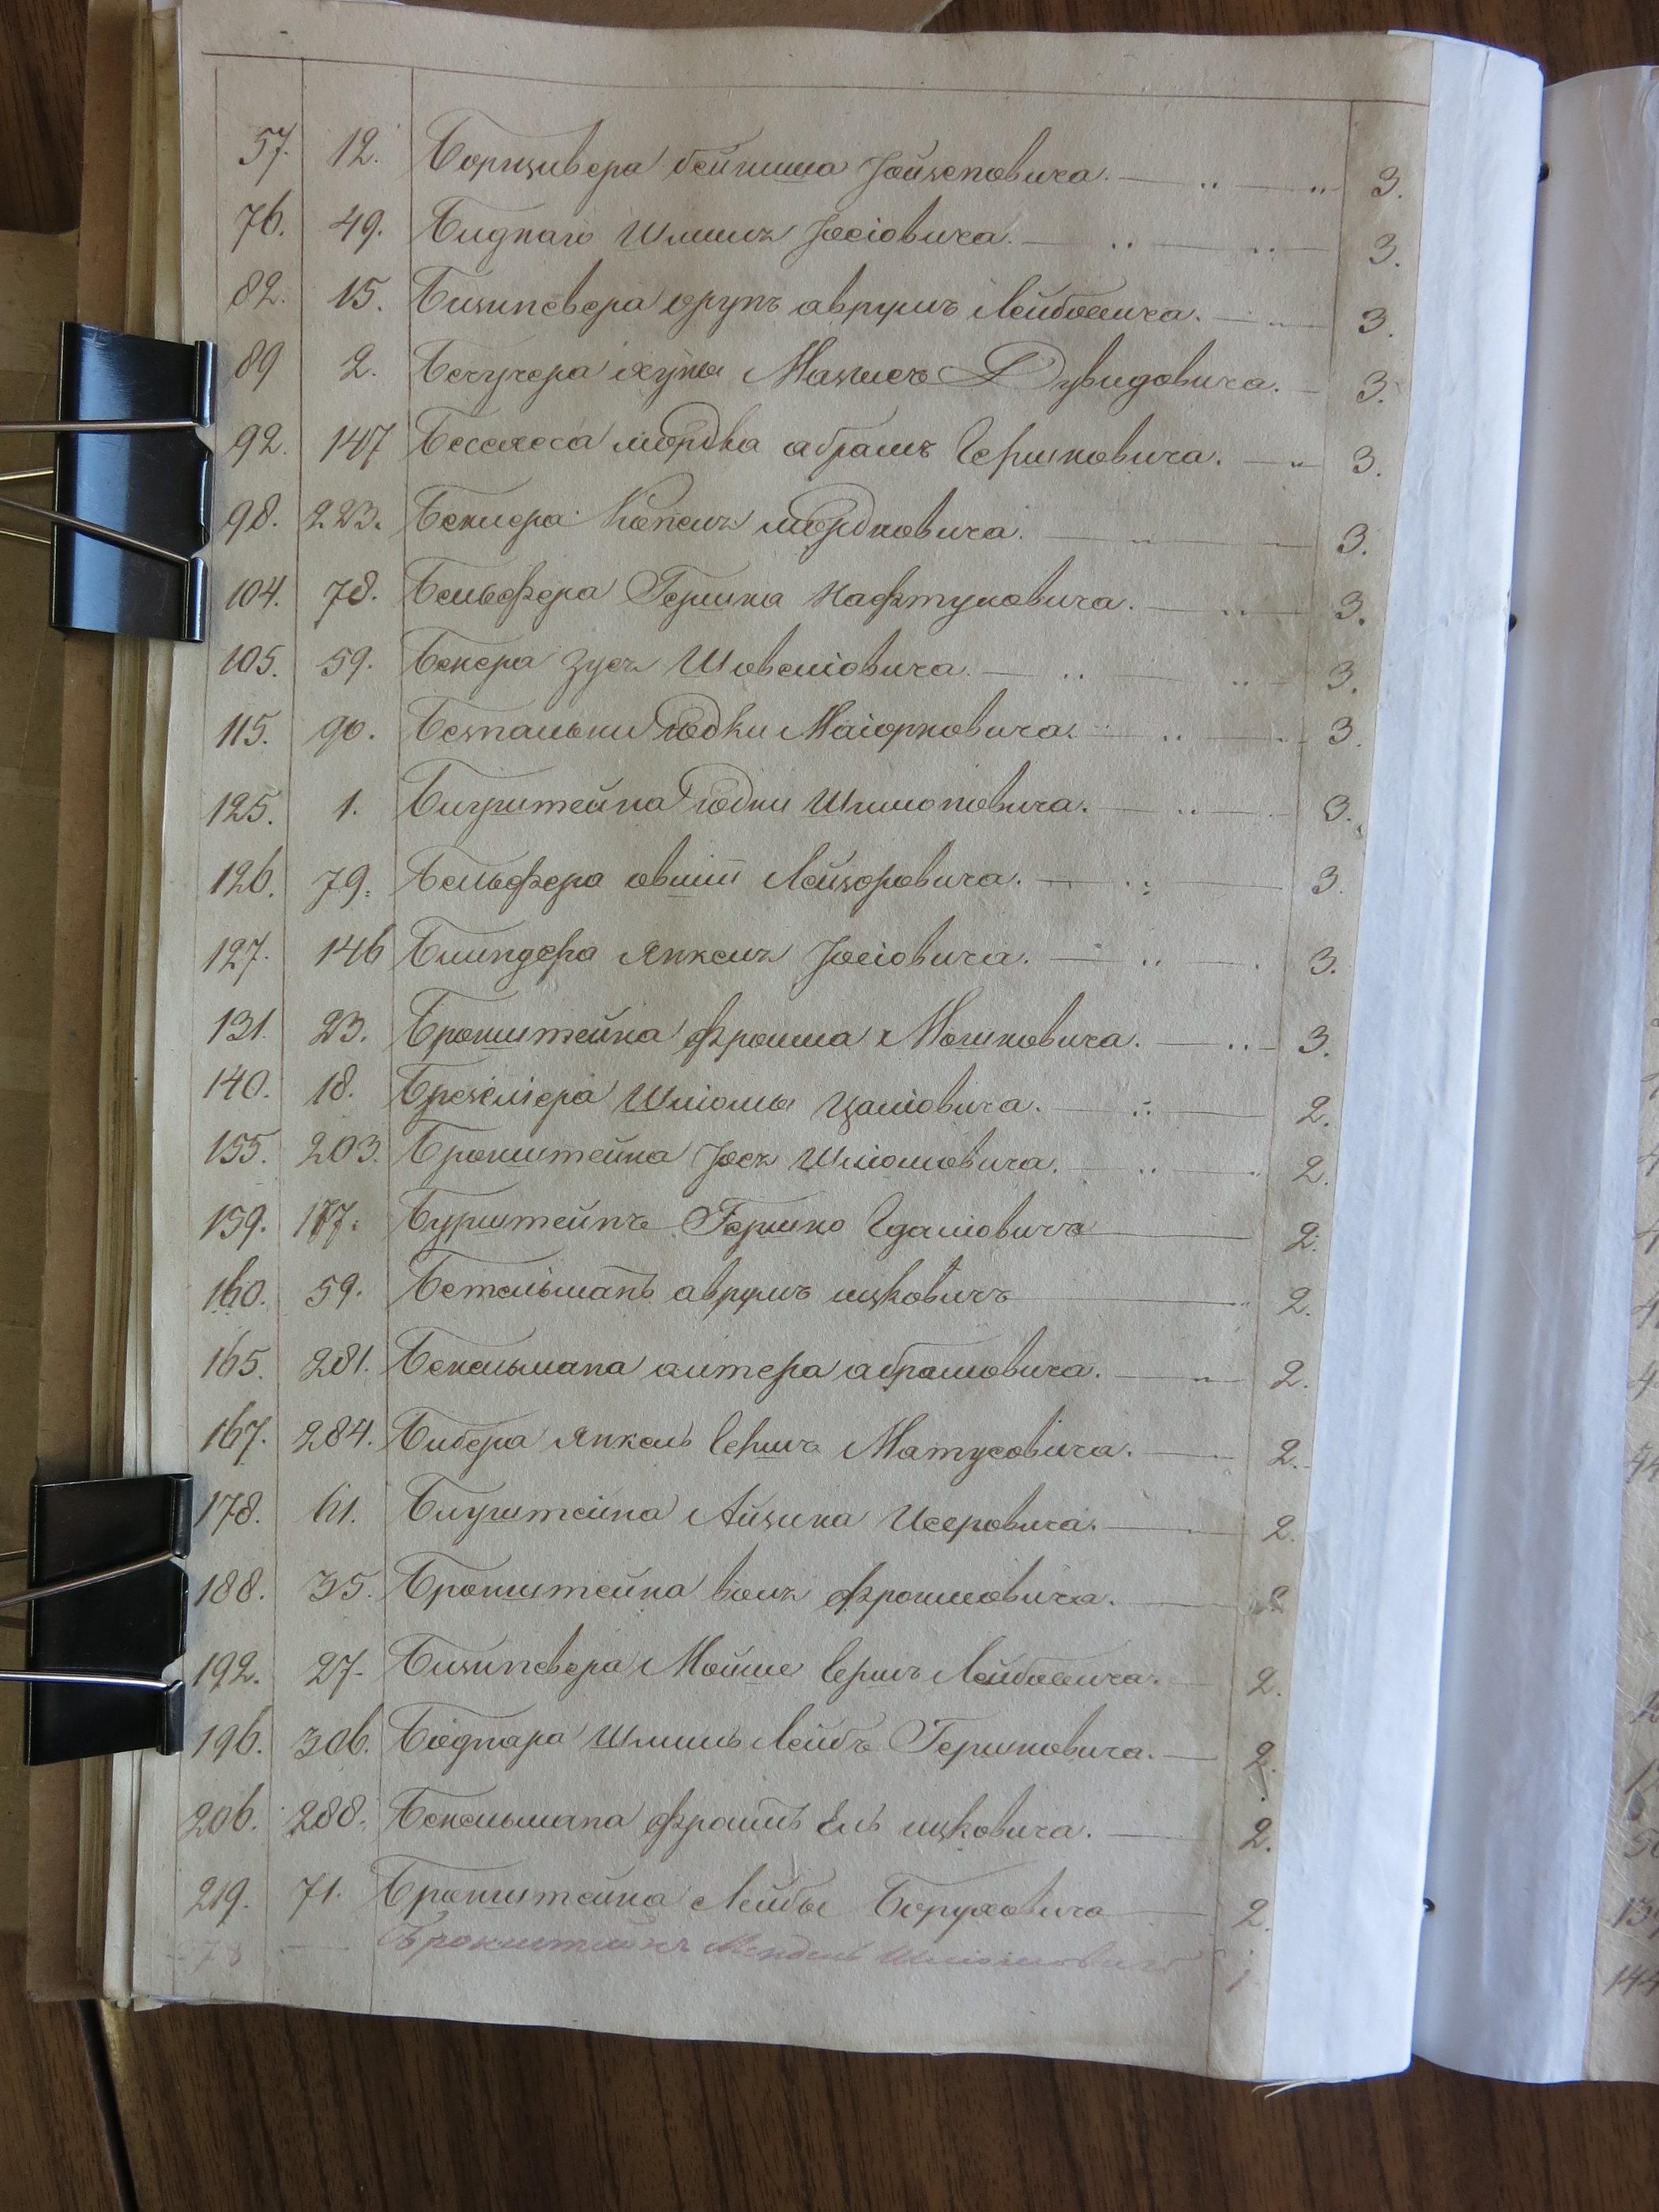 57. 12. Борщивера бейниша Іойзеповича. 3.
76. 49. Биднаго Шлиомъ Іосіовича. 3.
82. 15. Бизипевера врунъ аврумъ Лейбовича. 3.
89 2. хуны Дувидовича. 3.
92. 147 мордка абрамъ Гершковича. 3.
98. 223. Бекмера Копель мордковича. 3.
104. 78. Бельфера Гершка Нафтуловича. 3.
105. 59. Бекера Зусь Шовеліовича. 3.
115. 90. Іодки Маіорковича. 3.
125. 1. Іодки Шлиоповича. 3.
126. 79. Бельфера овший Лейзоровича. 3.
127. 146 Блиндера Янкель Іосіовича. 3.
131. 23. Бронштейна Фроима Мошковича. 3.
140. 18. Шліомы Цаліовича. 2.
155. 203. Бронштейна Іось Шліомовича. 2.
159. 177. Бурштейнъ Гершко Гдаліовича 2.
160. 59. Бетельманъ аврумъ ицковичъ 2.
165. 281. Бекельмана алтера абрамовича. 2.
167. 284. Бибера Янкель Гершъ Матусовича. 2.
178. 61. Блуштейна Айзика Исеровича. 2.
188. 35. Бронштейна Волъ Фроимовича. 2
192. 27. Бизипевера Мойше Гершъ Лейбовича. 2.
196. 306. Боднара Шмиль Лейбъ Гершковича. 2.
206. 288. Бекельмана Фроимъ Ель ицковича. 2.
219. 71. Бронштейна Лейбы Боруховича 2.
78 — Бронштейнъ Мендель Шліомовичъ 1